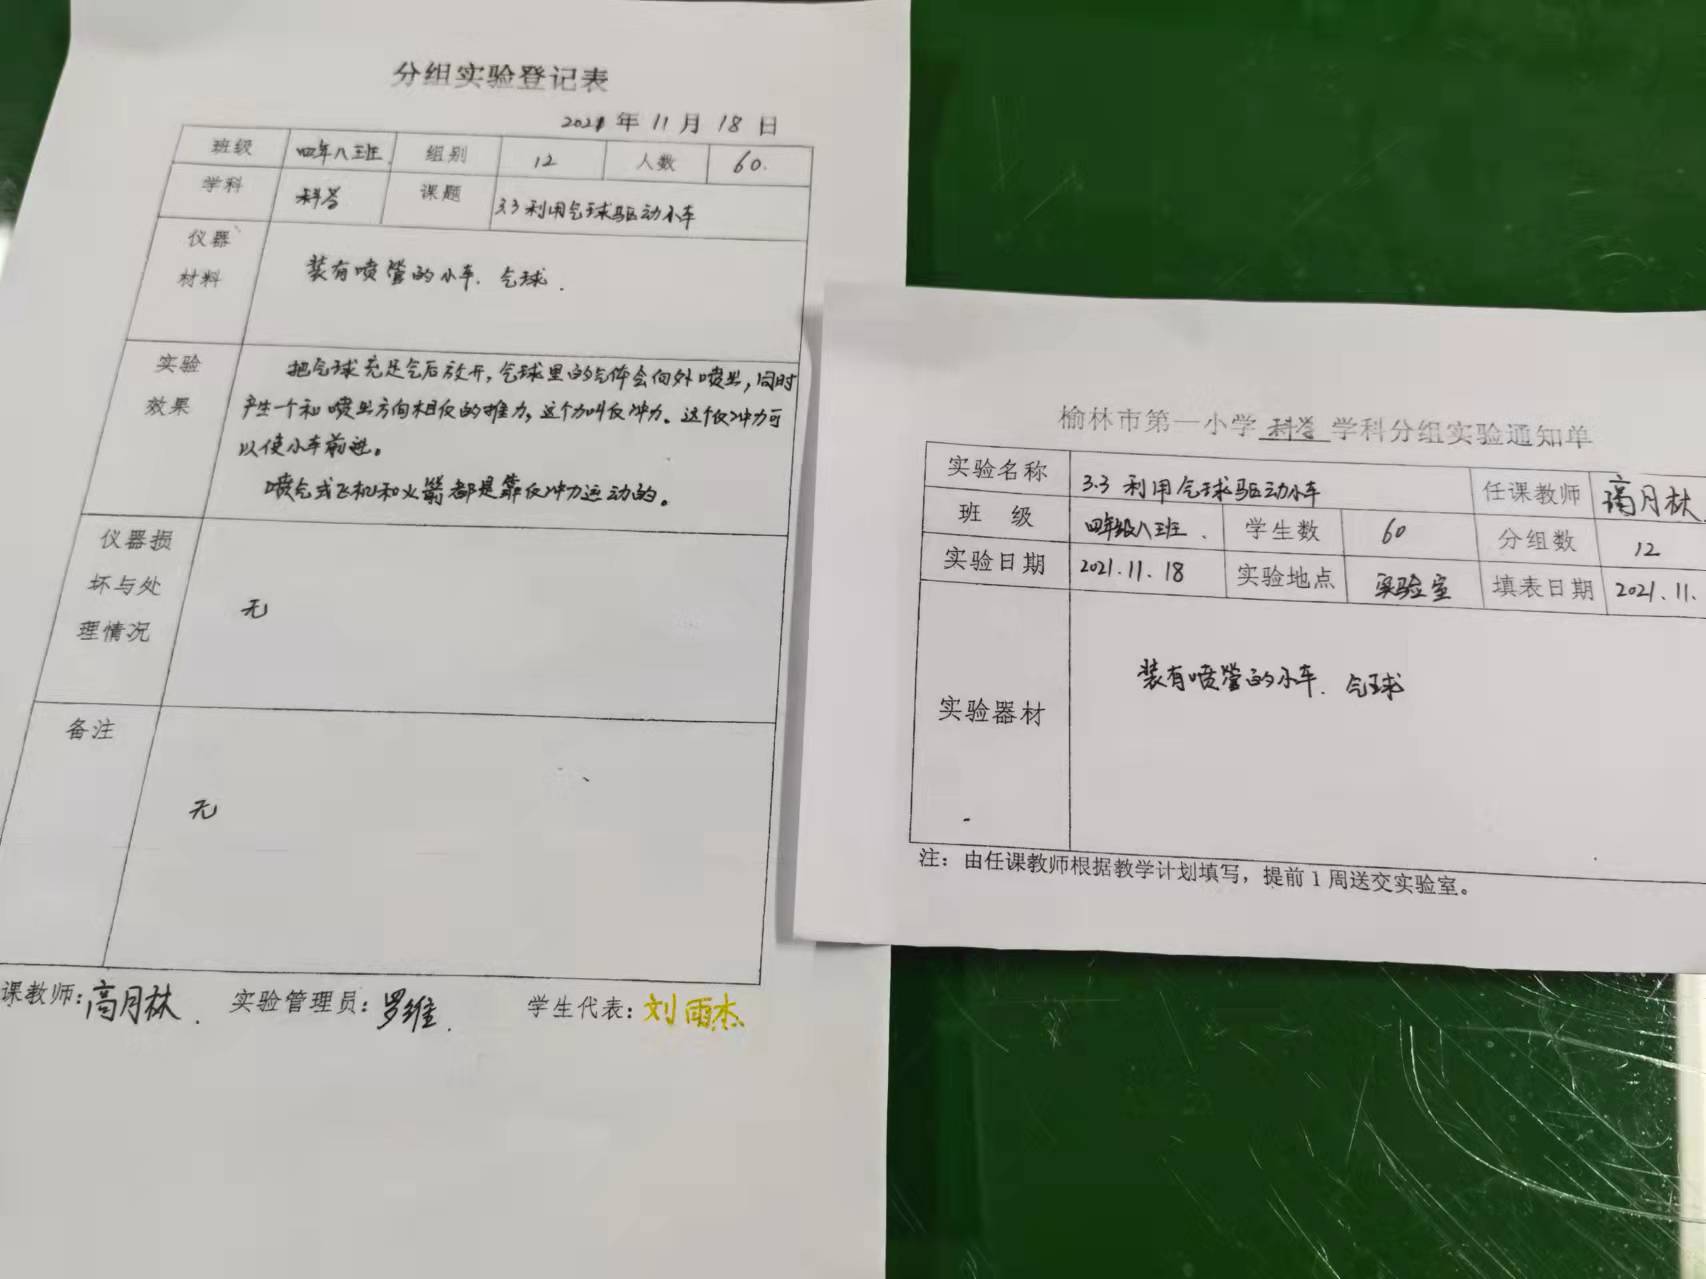 分组实验登记表
2021 年 11 月 18 日
班级 四年八班 组别 12 人数 60.
学科 科学 课题 3.3 利用气球驱动小车
仪器
材料
装有喷管的小车. 气球.
实验
效果
把气球充足气后放开,气球里的气体会向外喷出,同时
产生一个和喷出方向相反的推力,这个力叫反冲力.这个反冲力可
以使小车前进。
喷气式飞机和火箭都是靠反冲力运动的。
仪器损
坏与处
理情况
无
备注
无
课教师:高月林. 实验管理员:罗维. 学生代表:刘雨杰
榆林市第一小学 科学 学科分组实验通知单
实验名称 3.3 利用气球驱动小车 任课教师 高月林.
班 级 四年级八班. 学生数 60 分组数 12
实验日期 2021.11.18 实验地点 实验室 填表日期 2021.11.
实验器材 装有喷管的小车. 气球
注：由任课教师根据教学计划填写，提前1周送交实验室。